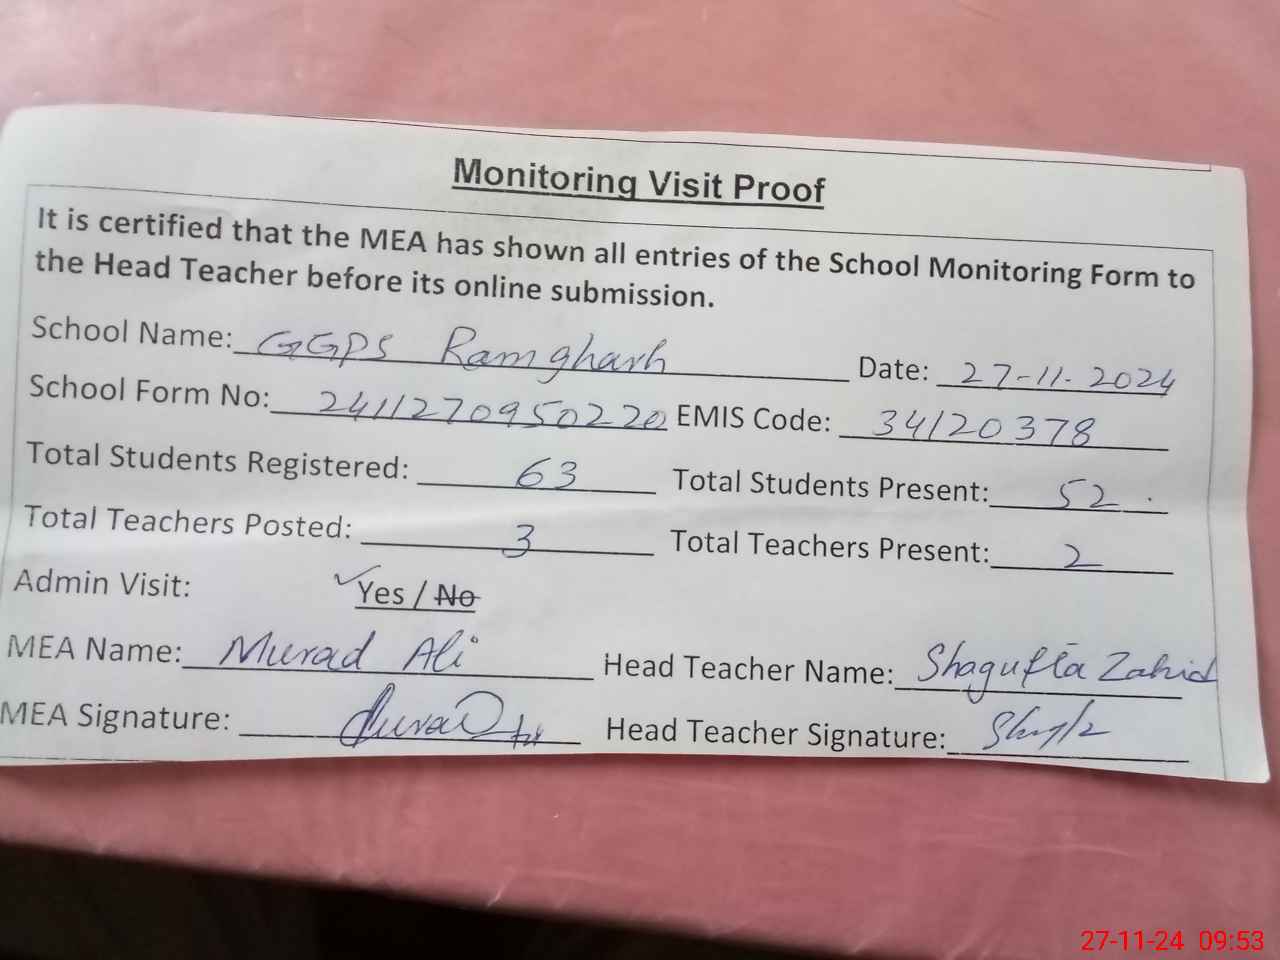 Monitoring Visit Proof
It is certified that the MEA has shown all entries of the School Monitoring Form to
the Head Teacher before its online submission.
School Name: GGPS Ramgharh Date: 27-11-2024
School Form No: 2411270950220 EMIS Code: 34120378
Total Students Registered: 63 Total Students Present: 52
Total Teachers Posted: 3 Total Teachers Present: 2
Admin Visit: Yes / No
MEA Name: Murad Ali Head Teacher Name: Shagufta Zahid
MEA Signature: Head Teacher Signature:
27-11-24 09:53